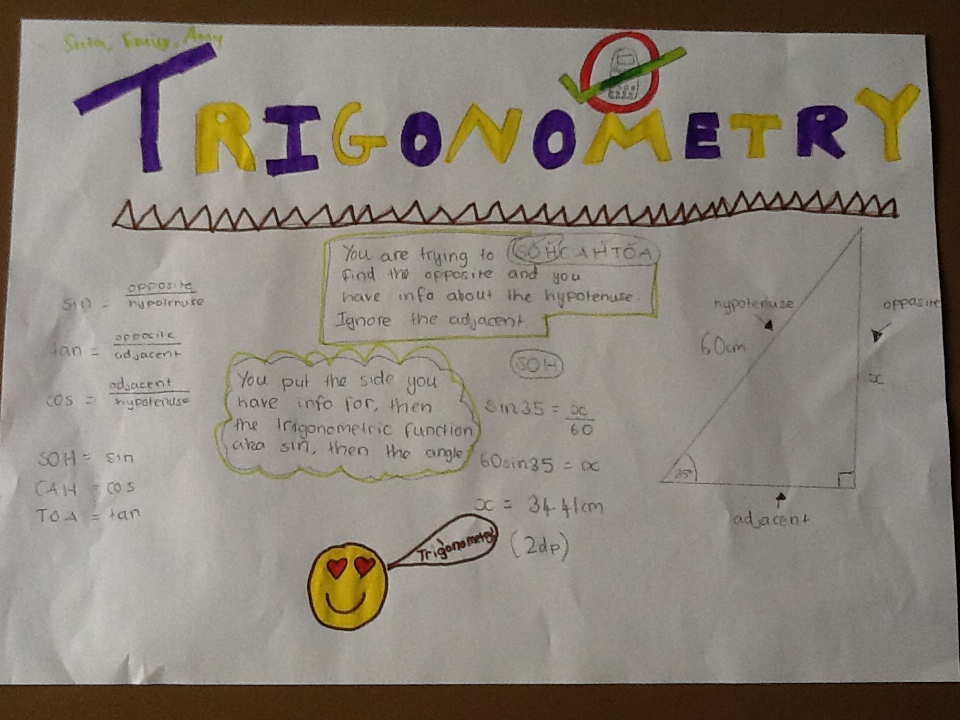 Emily, Amy
TRIGONOMETRY
You are trying to SOHCAHTOA
find the opposite and you
have info about the hypotenuse.
Ignore the adjacent.
sin = opposite
hypotenuse
tan = opposite
adjacent
cos = adjacent
hypotenuse
SOH = sin
CAH = cos
TOA = tan
You put the side you
have info for, then
the trigonometric function
aka sin, then the angle
SOH
sin35 = x
60
60sin35 = x
x = 34.41cm
(2dp)
Trigonometry
hypotenuse
60cm
opposite
x
35°
adjacent